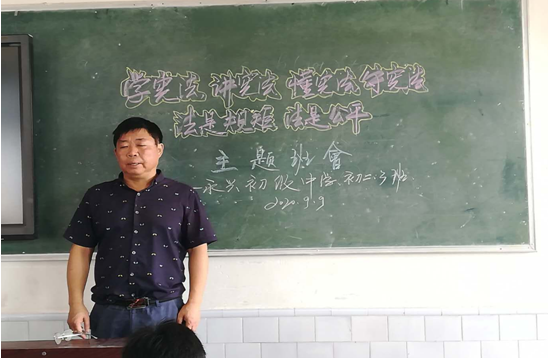 学宪法 讲宪法 懂宪法 守宪法
法是规矩 法是公平
主题班會
永兴初级中学初二.3班
2020.9.9